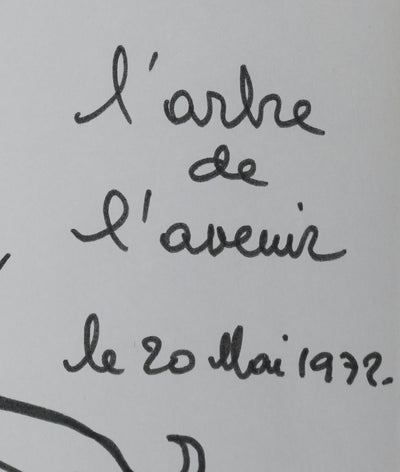 l'arbre
de
l'avenir
le 20 Mai 1972.